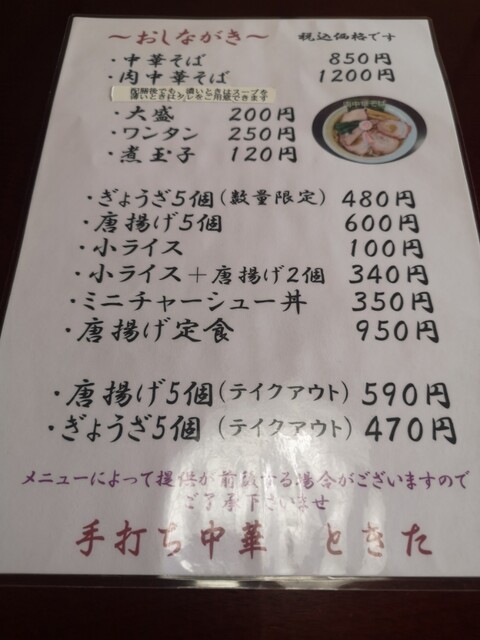 ～おしながき～ 税込価格です
・中華そば 850円
・肉中華そば 1200円
配膳後でも、濃いときはスープを
薄いときはタレをご用意できます
・大盛 200円
・ワンタン 250円
・煮玉子 120円
肉中華そば
・ぎょうざ5個(数量限定) 480円
・唐揚げ5個 600円
・小ライス 100円
・小ライス＋唐揚げ2個 340円
・ミニチャーシュー丼 350円
・唐揚げ定食 950円
・唐揚げ5個(テイクアウト) 590円
・ぎょうざ5個(テイクアウト) 470円
メニューによって提供が前後する場合がございますので
ご了承下さいませ
手打ち中華 ときた